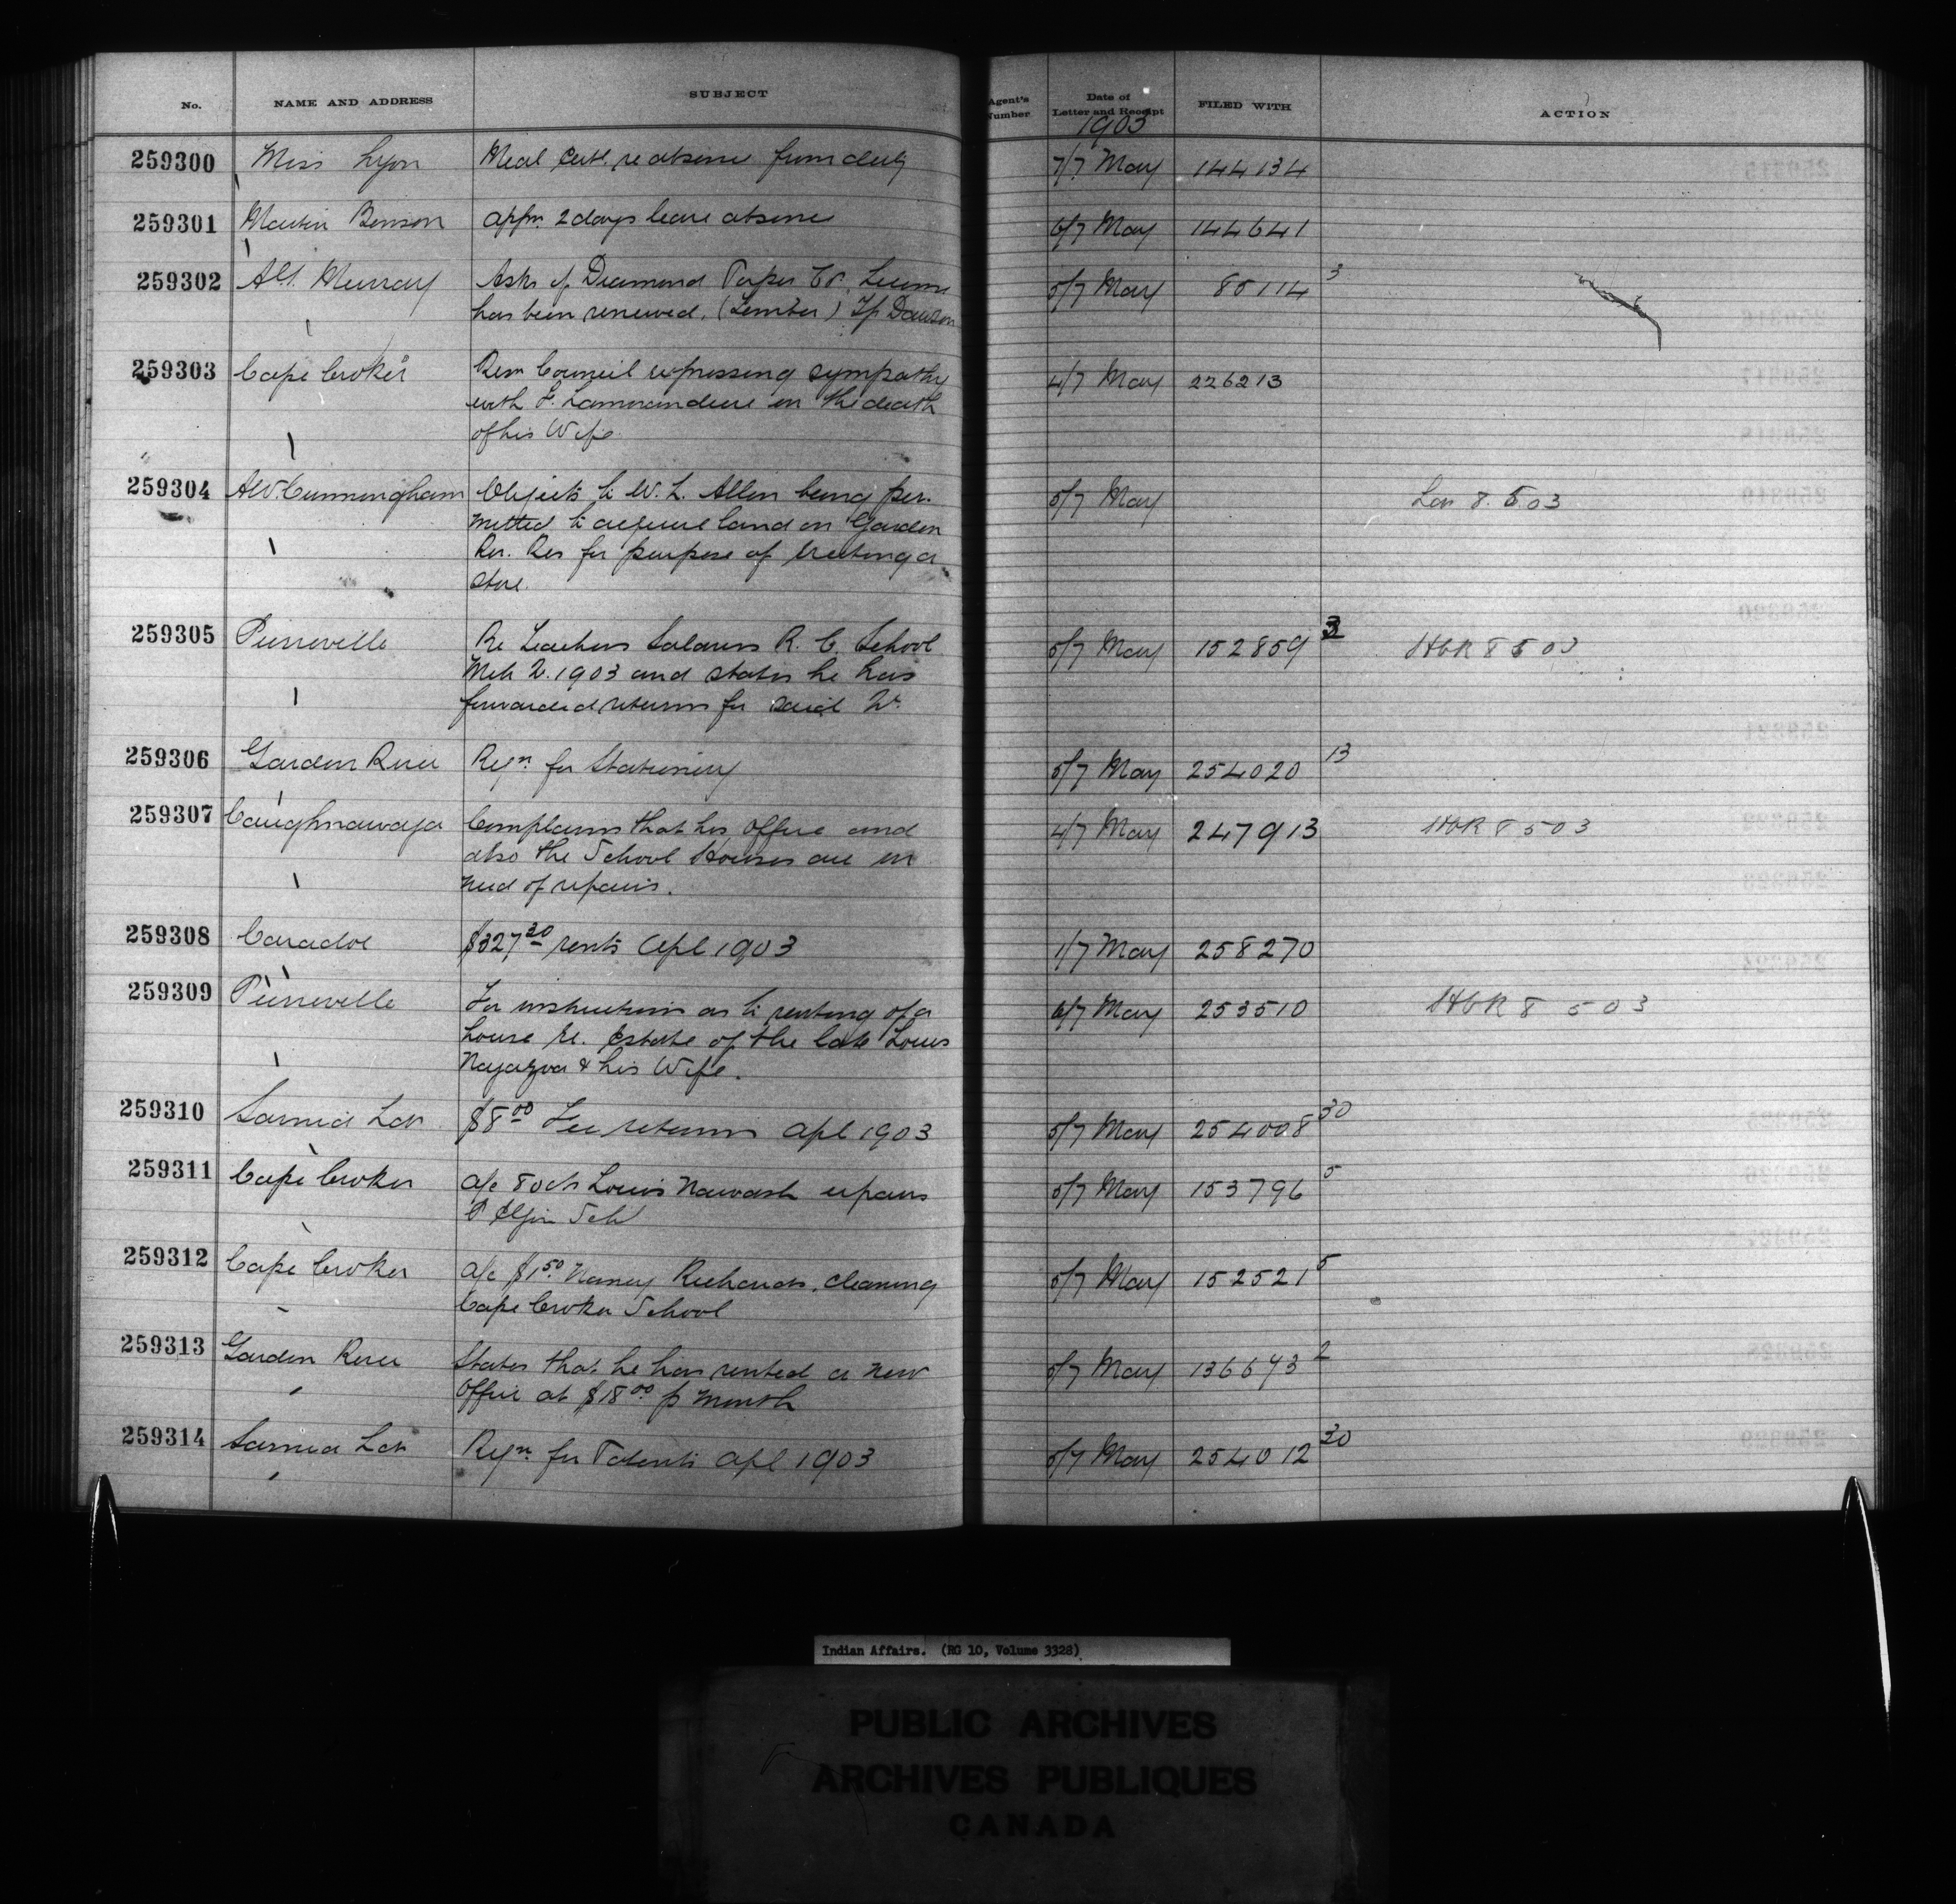 No. NAME AND ADDRESS SUBJECT Agent's Number Date of Letter and Receipt FILED WITH ACTION
1903
259300 Miss Lyon Medl Cert. re absence from duty 7/7 May 144134
259301 Martin Benson Appn. 2 days leave absence 6/7 May 144641
259302 Alf. Murray Asks if Diamond Paper Co. License 5/7 May 85114 3
has been renewed. (Timber) Tp Dawson
259303 Cape Croker Resn Council expressing sympathy 4/7 May 226213
with F. Lamorandiere on the death
of his Wife
259304 A.W. Cunningham Objects to W. L. Allen being per- 5/7 May 8. 5 03
mitted to acquire land on Garden
Riv. Res for purpose of erecting a
store.
259305 Pierreville Re Teachers Salaries R. C. School 5/7 May 152859 3 HCR 8 5 03
Mch Q. 1903 and states he has
forwarded returns for said Qr.
259306 Garden River Reqn. for Stationery 5/7 May 254020 13
259307 Caughnawaga Complains that his office and 4/7 May 247913 HCR 8 5 03
also the School Houses are in
need of repairs.
259308 Caradoc $327 30 rents Apl 1903 1/7 May 258270
259309 Pierreville For instructions as to renting of a 6/7 May 253510 HCR 8 5 03
house re. Estate of the late Louis
& his Wife.
259310 Sarnia $8 00 Fee returns Apl 1903 5/7 May 254008 30
259311 Cape Croker a/c 80cts Louis Nawash repairs 5/7 May 153796 5
P Elgin Schl
259312 Cape Croker a/c $1 50. Nancy Richards. cleaning 5/7 May 152521 5
Cape Croker School
259313 Garden River States that he has rented a new 5/7 May 136693 2
Office at $18 00 p month
259314 Sarnia Reqn. for Patents Apl 1903 5/7 May 254012 30
Indian Affairs. (RG 10, Volume 3328)
PUBLIC ARCHIVES
ARCHIVES PUBLIQUES
CANADA